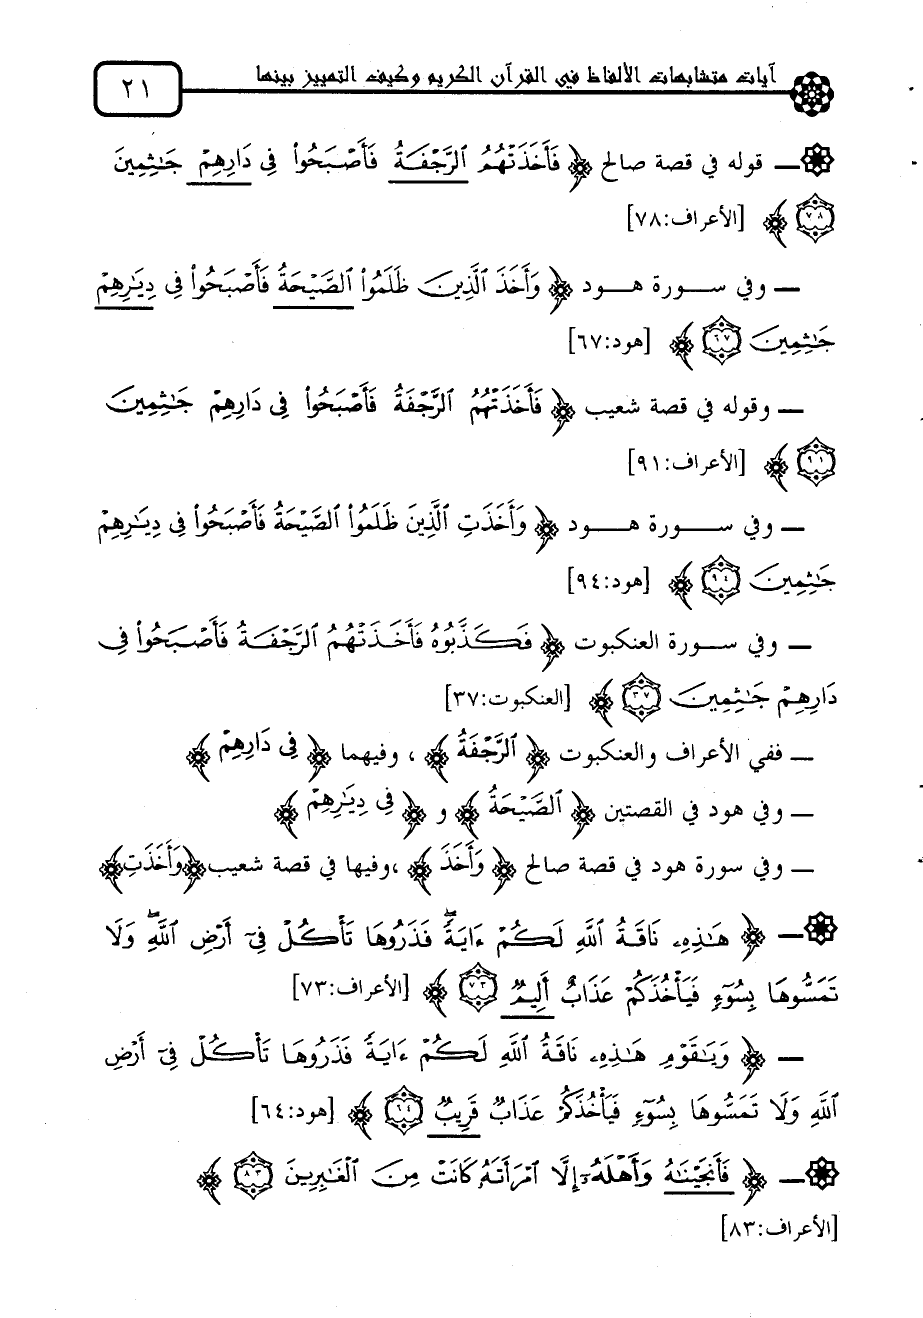 آيات متشابهات الألفاظ في القرآن الكريم وكيف التمييز بينها
٢١
ـ قوله في قصة صالح ﴿ فَأَخَذَتْهُمُ ٱلرَّجْفَةُ فَأَصْبَحُوا۟ فِى دَارِهِمْ جَـٰثِمِينَ
٧٨ ﴾ [الأعراف:٧٨]
ـ وفي ســـورة هـــود ﴿ وَأَخَذَ ٱلَّذِينَ ظَلَمُوا۟ ٱلصَّيْحَةُ فَأَصْبَحُوا۟ فِى دِيَـٰرِهِمْ
جَـٰثِمِينَ ٦٧ ﴾ [هود:٦٧]
ـ وقوله في قصة شعيب ﴿ فَأَخَذَتْهُمُ ٱلرَّجْفَةُ فَأَصْبَحُوا۟ فِى دَارِهِمْ جَـٰثِمِينَ
٩١ ﴾ [الأعراف:٩١]
ـ وفي ســـورة هـــود ﴿ وَأَخَذَتِ ٱلَّذِينَ ظَلَمُوا۟ ٱلصَّيْحَةُ فَأَصْبَحُوا۟ فِى دِيَـٰرِهِمْ
جَـٰثِمِينَ ٩٤ ﴾ [هود:٩٤]
ـ وفي ســـورة العنكبوت ﴿ فَكَذَّبُوهُ فَأَخَذَتْهُمُ ٱلرَّجْفَةُ فَأَصْبَحُوا۟ فِى
دَارِهِمْ جَـٰثِمِينَ ٣٧ ﴾ [العنكبوت:٣٧]
ـ ففي الأعراف والعنكبوت ﴿ ٱلرَّجْفَةُ ﴾ ، وفيهما ﴿ فِى دَارِهِمْ ﴾
ـ وفي هود في القصتين ﴿ ٱلصَّيْحَةُ ﴾ و ﴿ فِى دِيَـٰرِهِمْ ﴾
ـ وفي سورة هود في قصة صالح ﴿ وَأَخَذَ ﴾ ،وفيها في قصة شعيب ﴿وَأَخَذَتِ﴾
ـ ﴿ هَـٰذِهِۦ نَاقَةُ ٱللَّهِ لَكُمْ ءَايَةًۖ فَذَرُوهَا تَأْكُلْ فِىٓ أَرْضِ ٱللَّهِۖ وَلَا
تَمَسُّوهَا بِسُوٓءٍ فَيَأْخُذَكُمْ عَذَابٌ أَلِيمٌ ٧٣ ﴾ [الأعراف:٧٣]
ـ ﴿ وَيَـٰقَوْمِ هَـٰذِهِۦ نَاقَةُ ٱللَّهِ لَكُمْ ءَايَةً فَذَرُوهَا تَأْكُلْ فِىٓ أَرْضِ
ٱللَّهِ وَلَا تَمَسُّوهَا بِسُوٓءٍ فَيَأْخُذَكُمْ عَذَابٌ قَرِيبٌ ٦٤ ﴾ [هود:٦٤]
ـ ﴿ فَأَنجَيْنَـٰهُ وَأَهْلَهُۥٓ إِلَّا ٱمْرَأَتَهُۥ كَانَتْ مِنَ ٱلْغَـٰبِرِينَ ٨٣ ﴾
[الأعراف:٨٣]